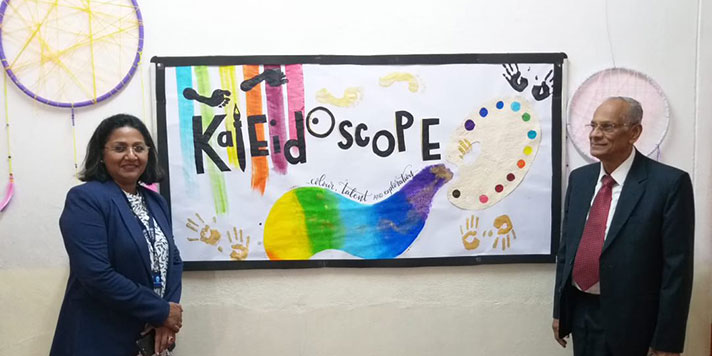 KaleidoscopE
colour, talent AND exploration!